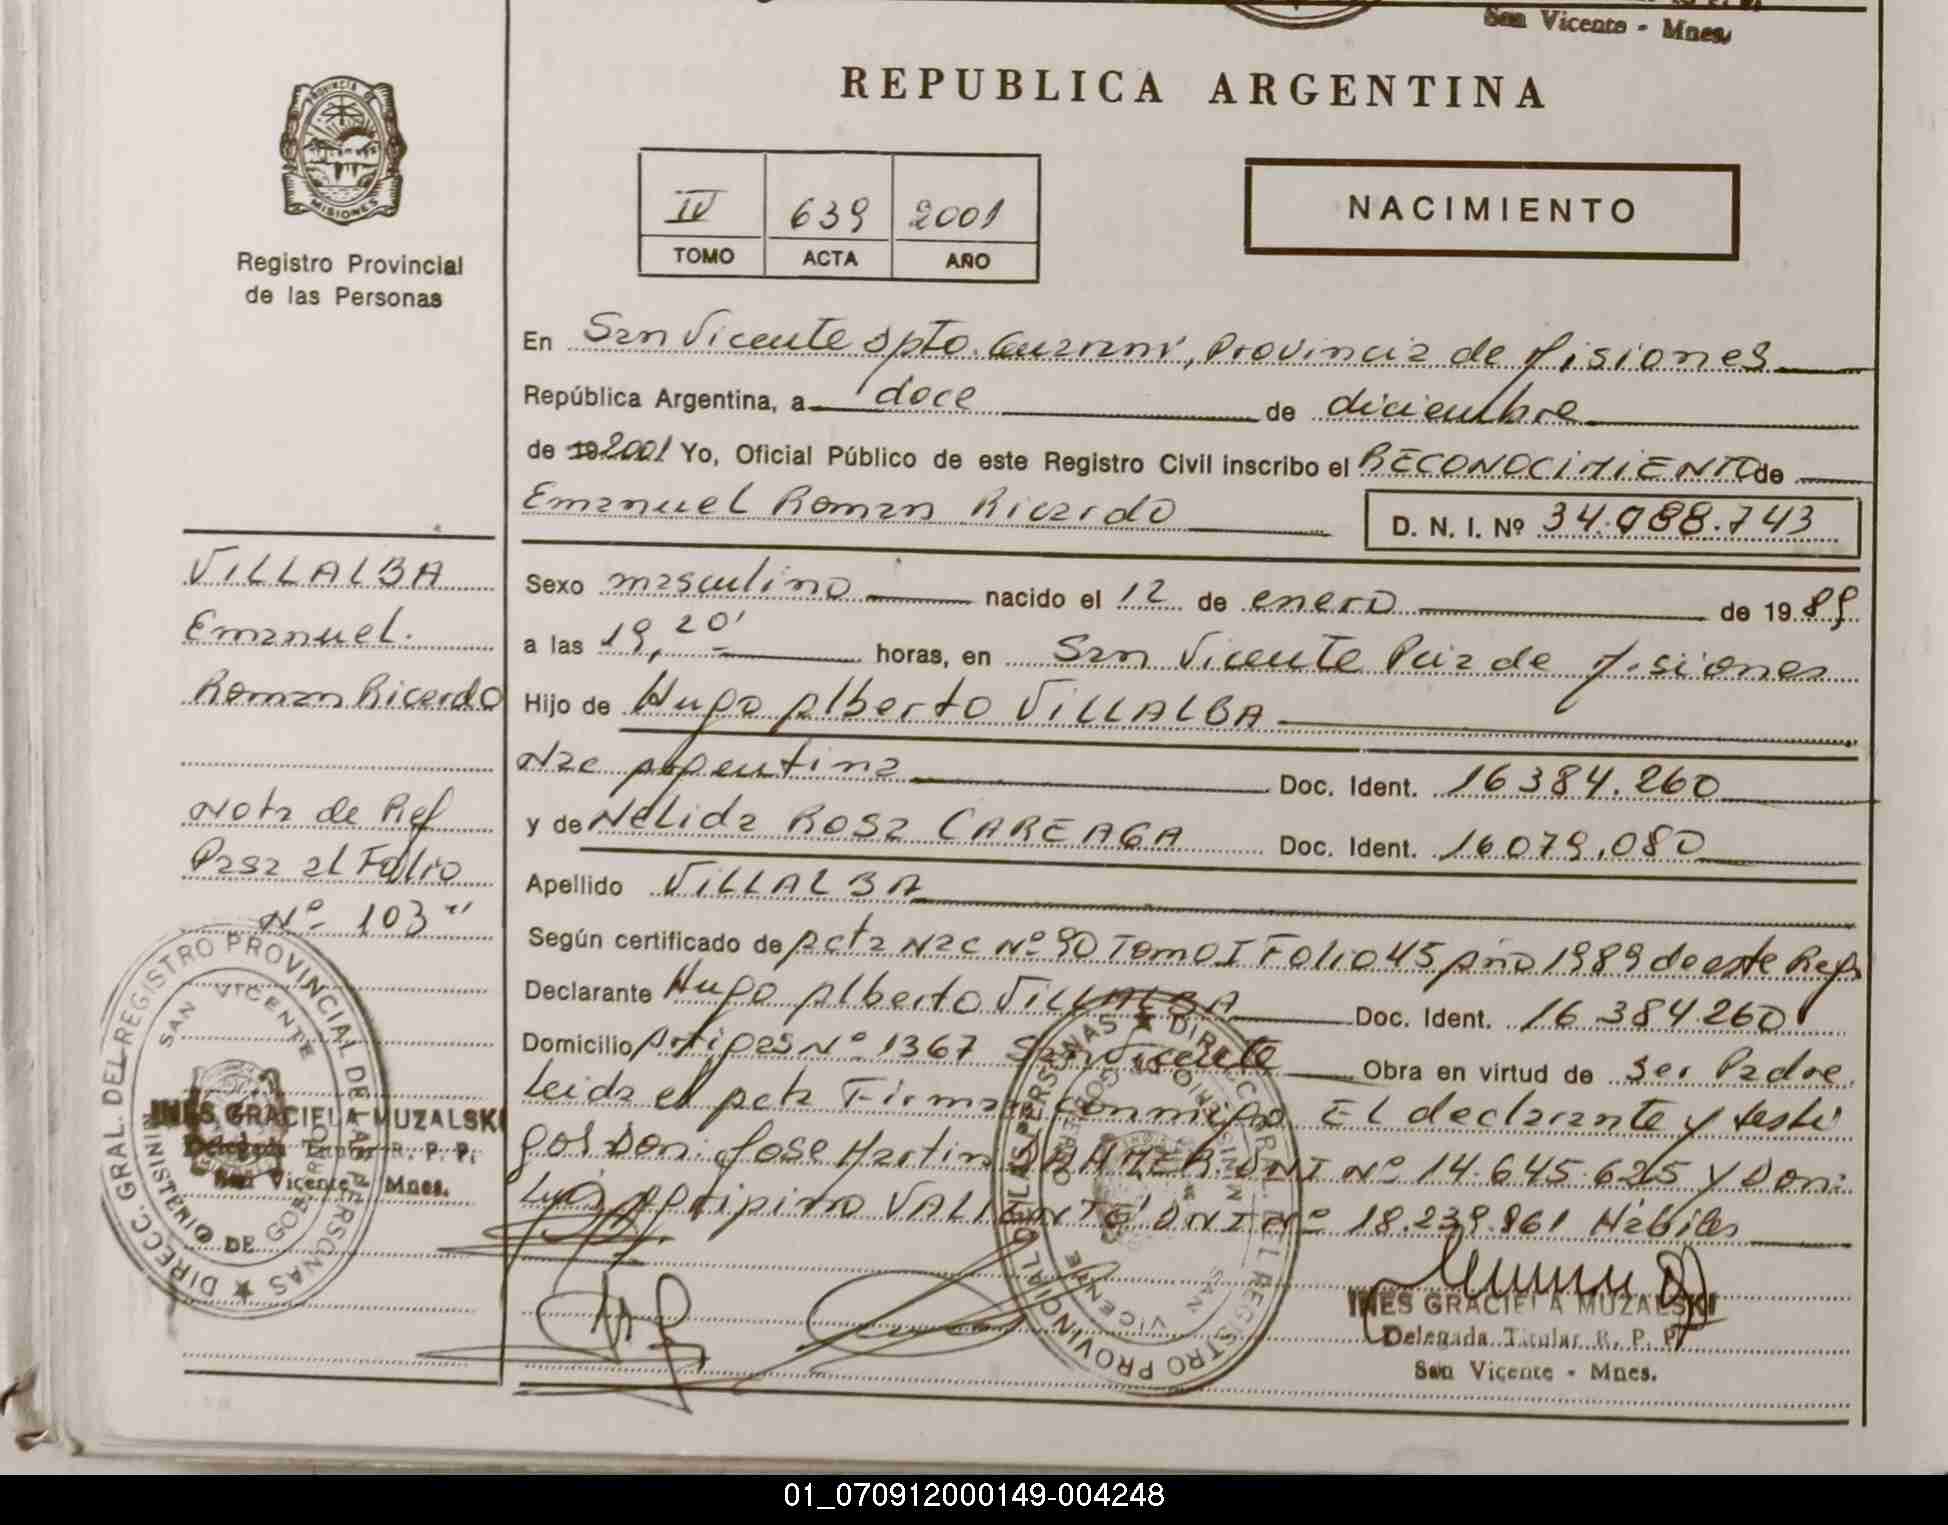 San Vicente - Mnes.
REPUBLICA ARGENTINA
PROVINCIA DE
MISIONES
Registro Provincial
de las Personas
IV 639 2001
TOMO ACTA AÑO
NACIMIENTO
En San Vicente Dpto. Guarani, Provincia de Misiones
República Argentina, a doce de diciembre
de 19 2001 Yo, Oficial Público de este Registro Civil inscribo el RECONOCIMIENTO de
Emanuel Roman Ricardo D. N. I. Nº 34.088.743
Sexo masculino nacido el 12 de enero de 19 89
a las 19,20' horas, en San Vicente Pcia de Misiones
Hijo de Hugo Alberto VILLALBA
Nac Argentina Doc. Ident. 16384.260
y de Nelida Rosa CAREAGA Doc. Ident. 16079.080
Apellido VILLALBA
Según certificado de Acta Nac Nº 90 Tomo I Folio 45 Año 1989 de este Reg.
Declarante Hugo Alberto VILLALBA Doc. Ident. 16 384.260
Domicilio Artigas Nº 1367 San Vicente Obra en virtud de Ser Padre.
Leida el Acta Firman conmigo El declarante y testi
gos Don: Jose Martin DNI Nº 14.645.625 Y Don:
Luis Agripino VALIENTE DNI Nº 18.239.861 Habiles
VILLALBA
Emanuel.
Roman Ricardo
Nota de Ref
Pasa al Folio
Nº 103"
DIRECC. GRAL. DEL REGISTRO PROVINCIAL DE LAS PERSONAS
SAN VICENTE
MINISTERIO DE GOBIERNO
INES GRACIELA MUZALSKI
Delegada Titular R. P. P.
San Vicente - Mnes.
DIRECC. GRAL. DEL REGISTRO PROVINCIAL DE LAS PERSONAS
MINISTERIO DE GOBIERNO
SAN VICENTE
INES GRACIELA MUZALSKI
Delegada Titular R. P. P.
San Vicente - Mnes.
01_070912000149-004248